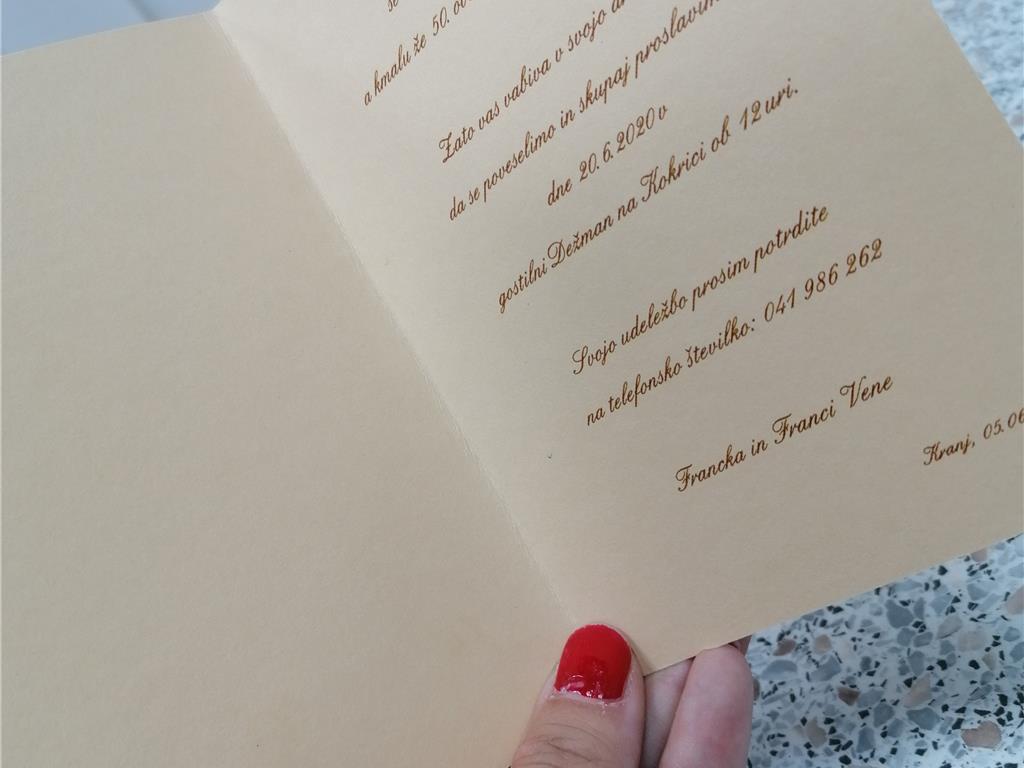 se
a kmalu že 50. ob
Zato vas vabiva v svojo
da se poveselimo in skupaj proslavimo
dne 20.6.2020 v
gostilni Dežman na Kokrici ob 12 uri.
Svojo udeležbo prosim potrdite
na telefonsko številko: 041 986 262
Francka in Franci Vene
Kranj, 05.06